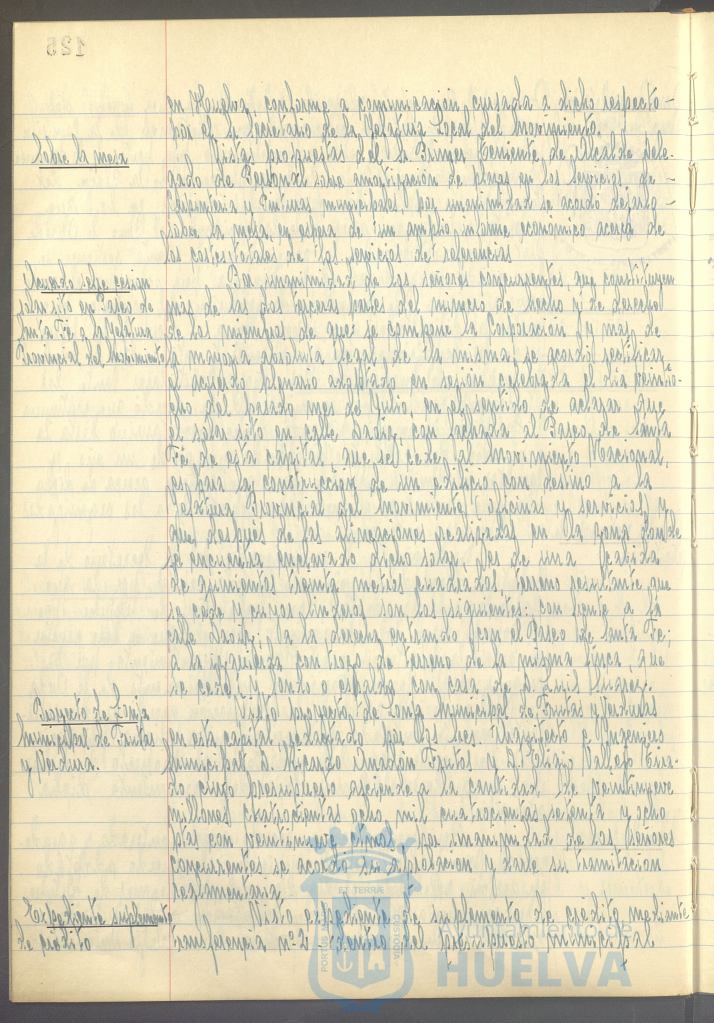 125
en Huelva, conforme a comunicación cursada a dicho respecto
por el Sr. Secretario de la Jefatura Local del Movimiento.
Sobre la mesa
Vistas propuestas del Sr. Primer Teniente de Alcalde Dele-
gado de Personal sobre amortización de plazas en los Servicios de
Carpintería y Pinturas municipales, por unanimidad se acordó dejarlo
sobre la mesa en espera de un amplio informe económico acerca de
los costes totales de los servicios de referencias
Acuerdo sobre cesión
solar sito en Paseo de
Santa Fé a la Jefatura
Provincial del Movimiento
Por unanimidad de los señores concurrentes, que constituyen
más de las dos terceras partes del número de hecho y de derecho
de los miembros de que se compone la Corporación y mas de
la mayoría absoluta legal de la misma, se acordó rectificar
el acuerdo plenario adoptado en sesión celebrada el día veintio-
cho del pasado mes de Julio, en el sentido de aclarar que
el solar sito en calle con fachada al Paseo de Santa
Fé de esta capital, que se cede al Movimiento Nacional,
es para la construcción de un edificio con destino a la
Jefatura Provincial del Movimiento (oficinas y servicios) y
que después de las alineaciones realizadas en la zona donde
se encuentra enclavado dicho solar, es de una cabida
de quinientos treinta metros cuadrados, terreno resultante que
se cede y cuyos linderos son los siguientes: con frente a la
calle a la derecha entrando con el Paseo de Santa Fé;
a la izquierda con trozo de terreno de la misma finca, que
se cede, y fondo o espalda con casa de D. Suarez.
Proyecto de Lonja
Municipal de Frutas
y Verdura.
Visto proyecto de Lonja Municipal de Frutas y Verduras
en esta capital, redactado por los Sres. Arquitecto e Ingeniero
Municipal D. Ricardo Anadón Frutos y D. Eligio Vallejo
cuyo presupuesto asciende a la cantidad de veintinueve
millones cuatrocientas ocho mil cuatrocientas setenta y ocho
ptas con veintinueve ctmos, por unanimidad de los señores
concurrentes se acordó su aprobación y darle su tramitación
reglamentaria
Expediente suplemento
de crédito
Visto expediente de suplemento de crédito mediante
transferencia nº 2 dentro del presupuesto municipal
Ayuntamiento de
HUELVA